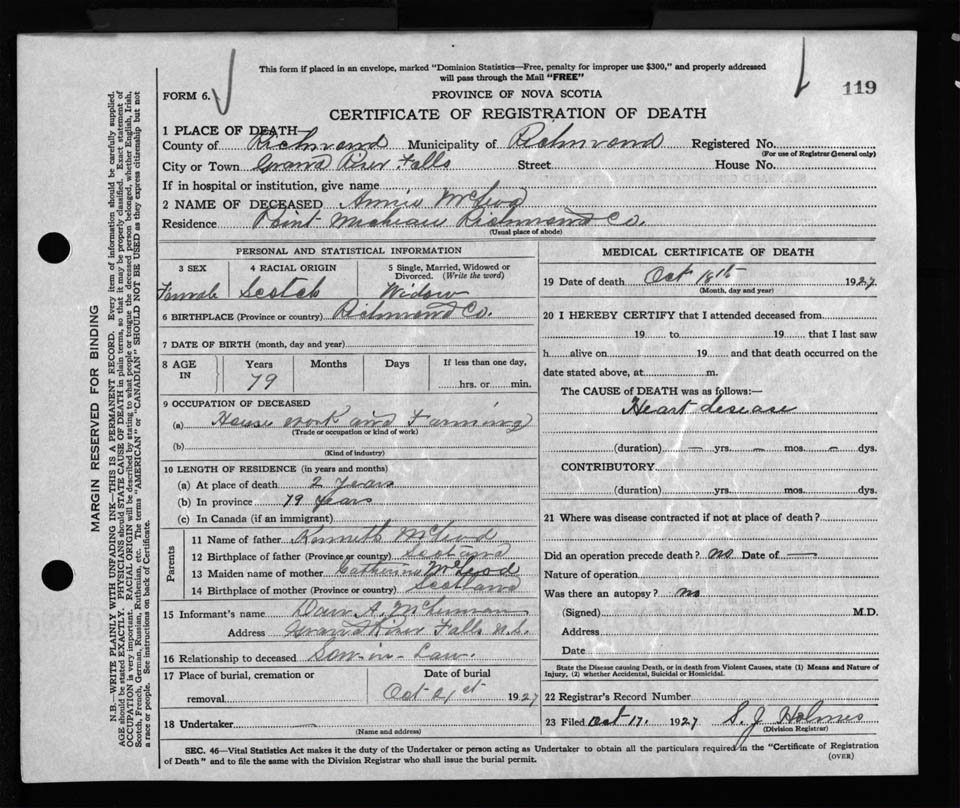 This form if placed in an envelope, marked "Dominion Statistics—Free, penalty for improper use $300," and properly addressed
will pass through the Mail "FREE"
119
FORM 6.
PROVINCE OF NOVA SCOTIA
CERTIFICATE OF REGISTRATION OF DEATH
1 PLACE OF DEATH—
County of Richmond Municipality of Richmond Registered No.
(For use of Registrar General only)
City or Town Grand River Falls Street House No.
If in hospital or institution, give name
2 NAME OF DECEASED Annie McLeod
Residence Point Micheau Richmond Co.
(Usual place of abode)
PERSONAL AND STATISTICAL INFORMATION
3 SEX 4 RACIAL ORIGIN 5 Single, Married, Widowed or
Divorced. (Write the word)
Female Scotch Widow
6 BIRTHPLACE (Province or country) Richmond Co.
7 DATE OF BIRTH (month, day and year)
8 AGE IN Years Months Days If less than one day,
79 hrs. or min.
9 OCCUPATION OF DECEASED
(a) House work and Farming
(Trade or occupation or kind of work)
(b)
(Kind of industry)
10 LENGTH OF RESIDENCE (in years and months)
(a) At place of death 2 years
(b) In province 79 years
(c) In Canada (if an immigrant)
Parents
11 Name of father Kenneth McLeod
12 Birthplace of father (Province or country) Scotland
13 Maiden name of mother Catherine McLeod
14 Birthplace of mother (Province or country) Scotland
15 Informant's name A.
Address Grand River Falls N.S.
16 Relationship to deceased Son-in-Law.
17 Place of burial, cremation or Date of burial
removal Oct 21st 1927
18 Undertaker —
(Name and address)
MEDICAL CERTIFICATE OF DEATH
19 Date of death Oct 1927
(Month, day and year)
20 I HEREBY CERTIFY that I attended deceased from
19 to 19 that I last saw
h alive on 19 and that death occurred on the
date stated above, at m.
The CAUSE of DEATH was as follows:—
Heart disease
(duration) — yrs. — mos. — dys.
CONTRIBUTORY
(duration) yrs. mos. dys.
21 Where was disease contracted if not at place of death?
Did an operation precede death? no Date of —
Nature of operation
Was there an autopsy? no
(Signed) M.D.
Address
Date
State the Disease causing Death, or in death from Violent Causes, state (1) Means and Nature of
Injury, (2) whether Accidental, Suicidal or Homicidal.
22 Registrar's Record Number
23 Filed Oct 17. 1927 S. J Holmes
(Division Registrar)
SEC. 46—Vital Statistics Act makes it the duty of the Undertaker or person acting as Undertaker to obtain all the particulars required in the "Certificate of Registration
of Death" and to file the same with the Division Registrar who shall issue the burial permit.
(OVER)
MARGIN RESERVED FOR BINDING
N.B.—WRITE PLAINLY WITH UNFADING INK—THIS IS A PERMANENT RECORD. Every item of information should be carefully supplied.
AGE should be stated EXACTLY. PHYSICIANS should STATE CAUSE OF DEATH in plain terms, so that it may be properly classified. Exact statement of
OCCUPATION is very important. RACIAL ORIGIN will be described by stating to what people or tongue the deceased person belonged, whether English, Irish,
Scotch, French, German, Russian, Ruthenian, etc. The terms "AMERICAN" or "CANADIAN" SHOULD NOT BE USED as they express citizenship but not
a race or people. See instructions on back of Certificate.